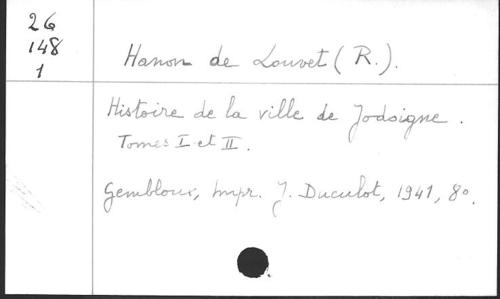 26
148
1
Hanon de Louvet (R.).
Histoire de la ville de Jodoigne.
Tomes I et II.
Gembloux, Impr. J. Duculot, 1941, 8°.